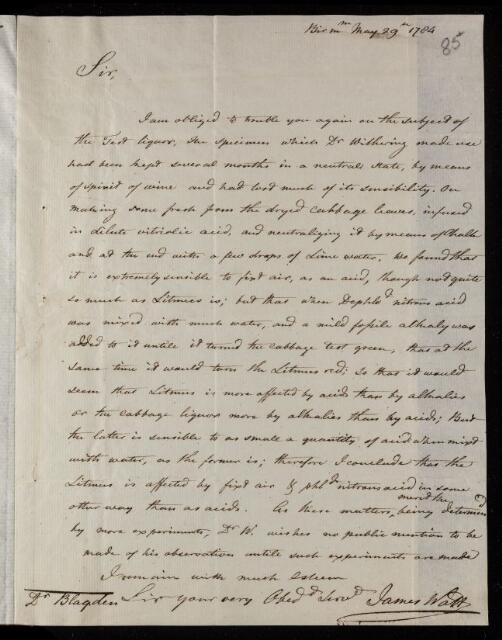 Birm.m May 29th 1784
85
Sir,
I am obliged to trouble you again on the subject of
the Test liquor, the specimen which Dr Withering made use
had been kept several months in a neutral state, by means
of spirit of wine and had lost much of its sensibility. On
making some fresh from the dryed cabbage leaves, infused
in dilute vitriolic acid, and neutralizing it by means of Chalk
and at the end with a few drops of Lime water, We found that
it is extremely sensible to fixt air, as an acid, though not quite
so much as Litmus is; but that when Dephlo.d nitrous acid
was mixed with much water, and a mild fossile alkaly was
added to it until it turned the cabbage test green, that at the
same time it would turn the Litmus red; so that it would
seem that Litmus is more affected by acids than by alkalies
or the cabbage liquor more by alkalies than by acids; But
the latter is sensible to as small a quantity of acid when mixt
with water, as the former is; therefore I conclude that the
Litmus is affected by fixt air & phl.d nitrous acid in some
other way than as acids. As these matters, being determined
by more experiments, Dr W. wishes no public mention to be
made of his observations untile such experiments are made
I remain with much Esteem
Dr Blagden Sir your very Obed.t Serv.t James Watt